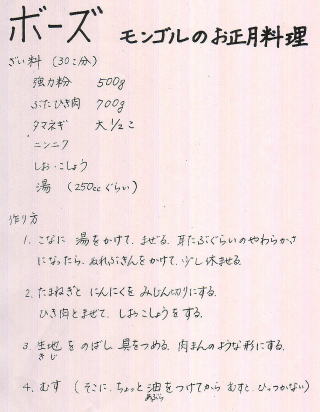 ボーズ モンゴルのお正月料理
ざい料 (30こ分)
強力粉 500g
ぶたひき肉 700g
タマネギ 大1/2こ
ニンニク
しお・こしょう
湯 (250ccぐらい)
作り方
1. こなに 湯をかけて、まぜる。耳たぶぐらいのやわらかさ
になったら、ぬれぶきんをかけて、少し休ませる。
2. たまねぎと にんにくを みじん切りにする。
ひき肉とまぜて、しおこしょうをする。
3. 生地を のばし 具をつめる。肉まんのような形にする。
きじ
4. むす (そこに、ちょっと油をつけてから むすと、ひっつかない)
あぶら